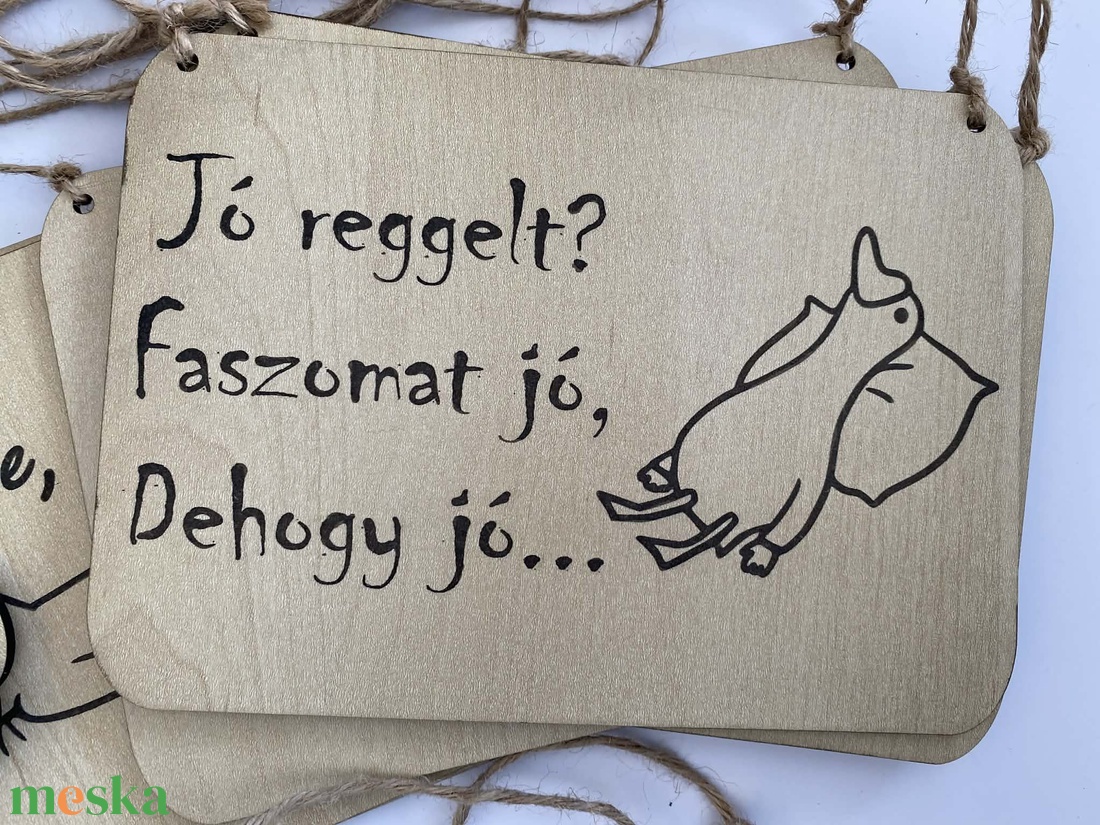 Jó reggelt?
Faszomat jó,
Dehogy jó...
e,
meska